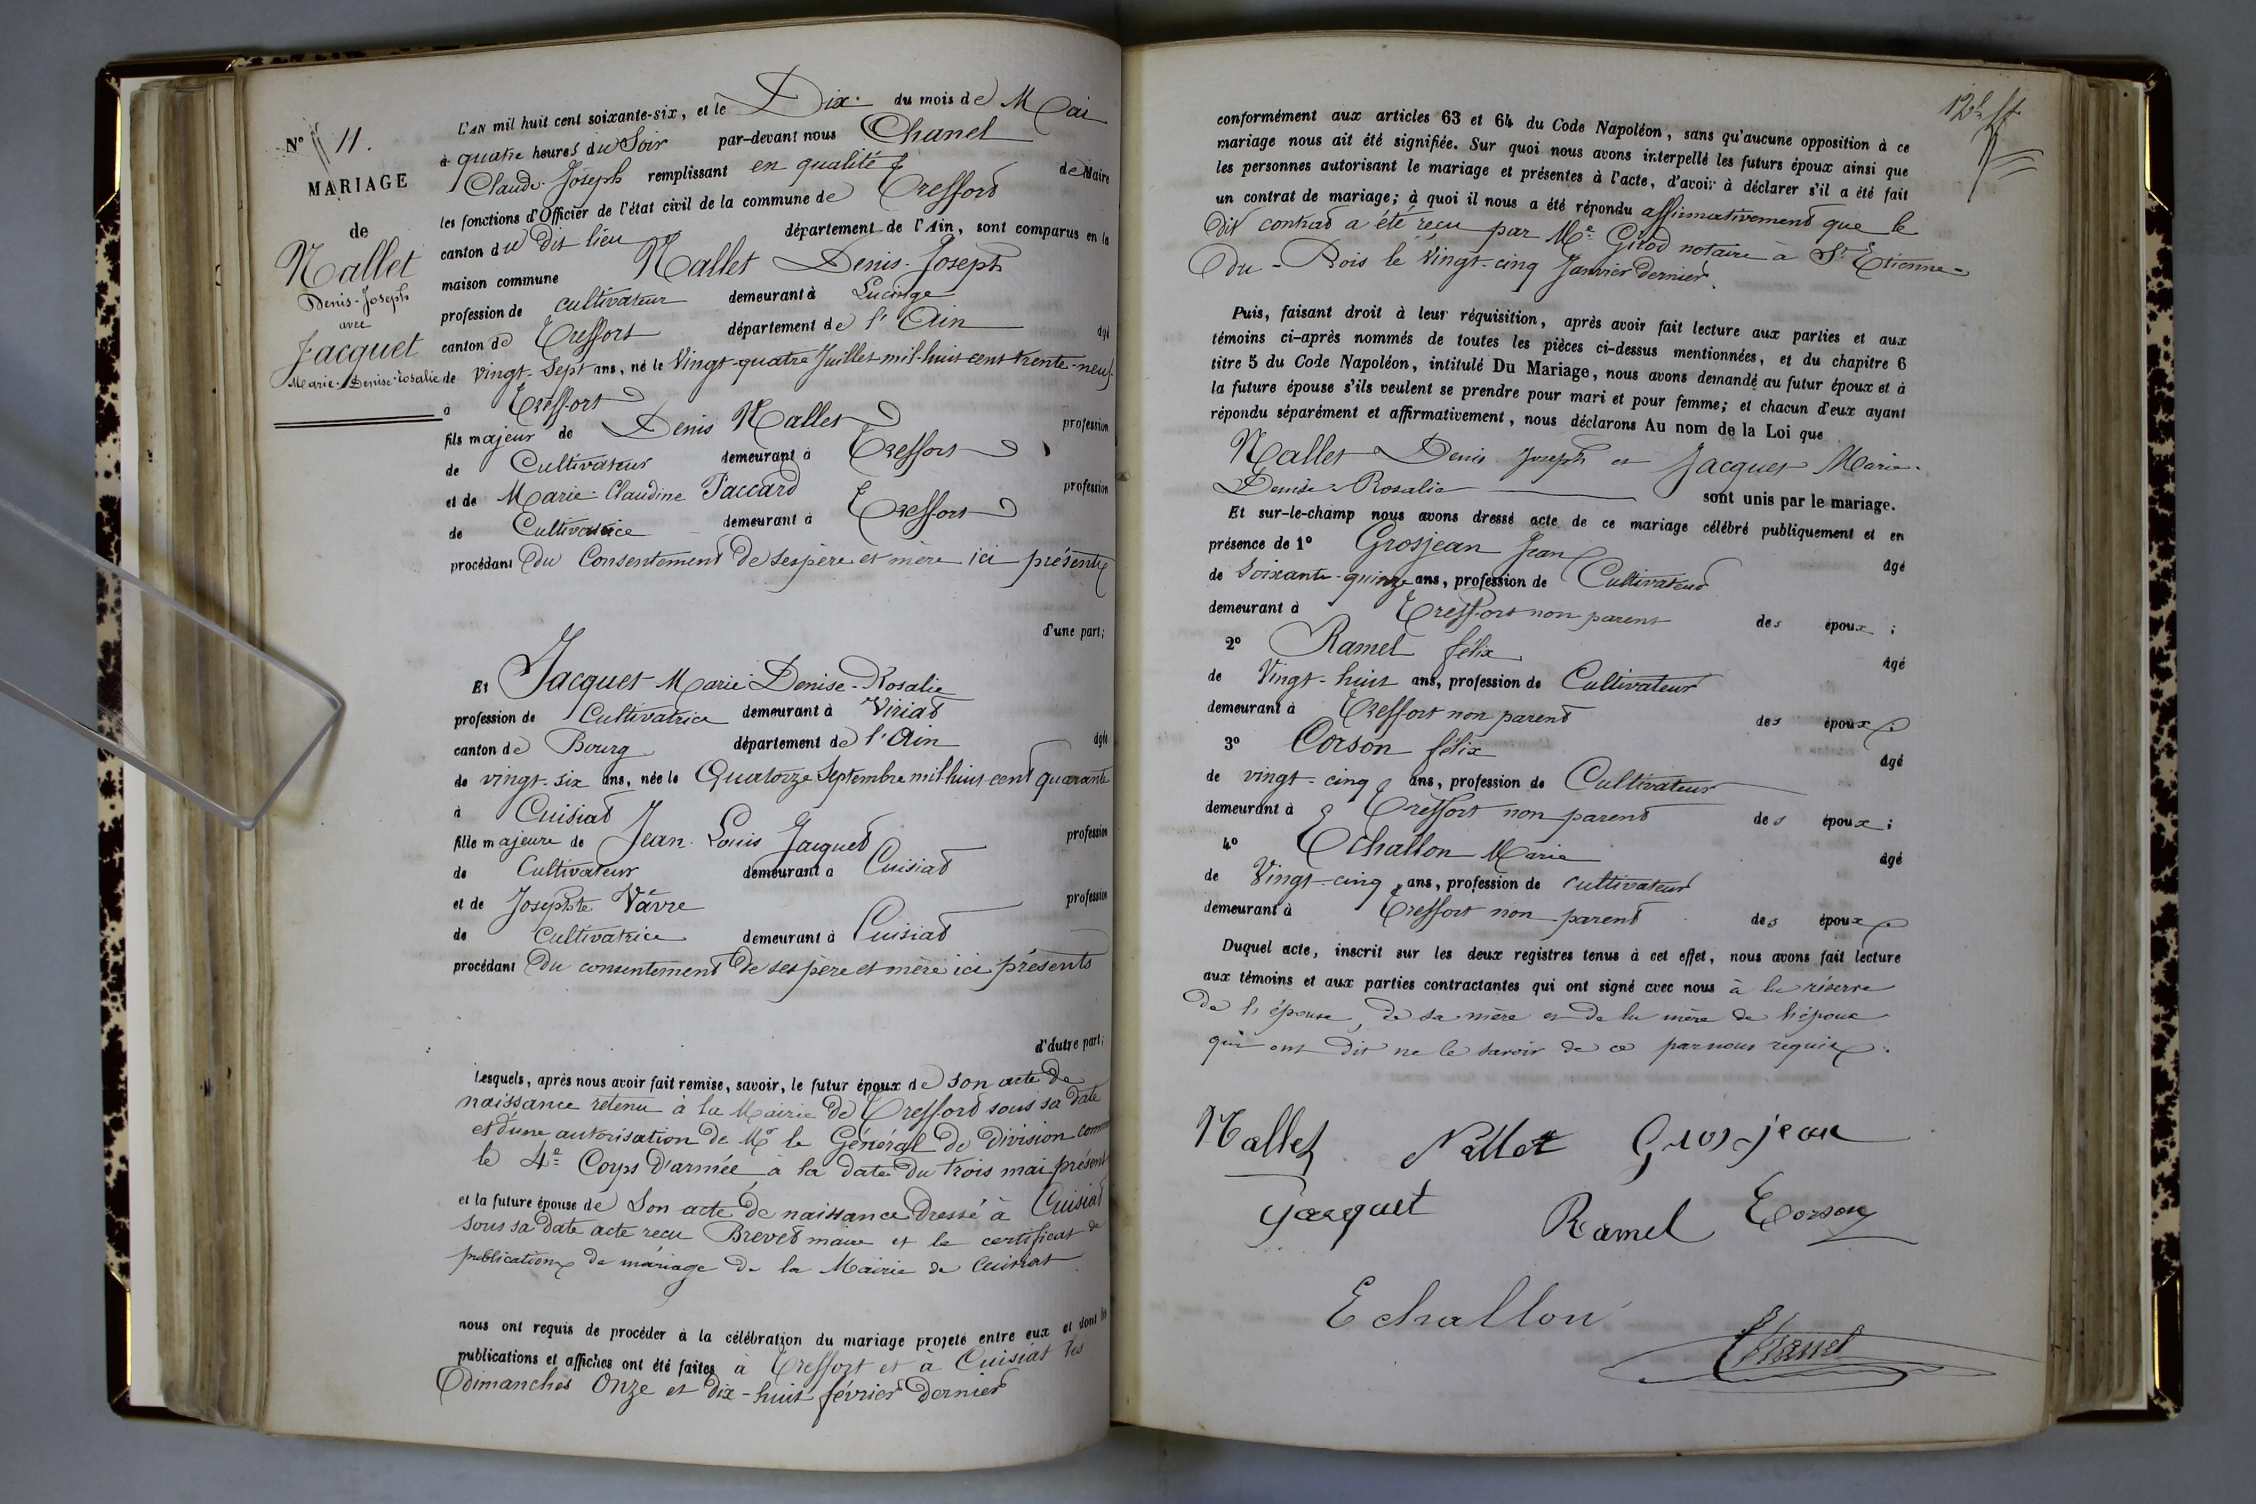 N° 11.
MARIAGE
de
Nallet
Denis-Joseph
avec
Jacquet
Marie-Denise-Rosalie
L'AN mil huit cent soixante-six, et le Dix du mois de Mai
à quatre heures du Soir par-devant nous Chanel
Claude-Joseph remplissant en qualité de Maire
les fonctions d'Officier de l'état civil de la commune de Treffort
canton du dit lieu département de l'Ain, sont comparus en la
maison commune Nallet Denis-Joseph
profession de cultivateur demeurant à Lucinge
canton de Treffort département de l'Ain âgé
de vingt-sept ans, né le Vingt-quatre Juillet mil-huit cent trente-neuf
à Treffort
fils majeur de Denis Nallet profession
de Cultivateur demeurant à Treffort
et de Marie-Claudine Paccard profession
de Cultivatrice demeurant à Treffort
procédant du Consentement de ses père et mère ici présents
d'une part;
Et Jacquet Marie Denise-Rosalie
profession de Cultivatrice demeurant à Viriat
canton de Bourg département de l'Ain âgée
de vingt-six ans, née le Quatorze Septembre mil-huit-cent quarante
à Cuisiat
fille majeure de Jean-Louis Jacquet profession
de Cultivateur demeurant à Cuisiat
et de Josephte Vavre profession
de Cultivatrice demeurant à Cuisiat
procédant du consentement de ses père et mère ici présents
d'autre part;
Lesquels, après nous avoir fait remise, savoir, le futur époux de son acte de
naissance retenu à la Mairie de Treffort sous sa date
et d'une autorisation de Mr le Général de Division com
le 4e Corps d'armée à la date du trois mai présent
et la future épouse de Son acte de naissance dressé à Cuisiat
sous sa date acte reçu Brevet maire et le certificat de
publications de mariage de la Mairie de Cuisiat
nous ont requis de procéder à la célébration du mariage projeté entre eux et dont les
publications et affiches ont été faites à Treffort et à Cuisiat les
dimanches Onze et dix-huit février dernier
conformément aux articles 63 et 64 du Code Napoléon, sans qu'aucune opposition à ce
mariage nous ait été signifiée. Sur quoi nous avons interpellé les futurs époux ainsi que
les personnes autorisant le mariage et présentes à l'acte, d'avoir à déclarer s'il a été fait
un contrat de mariage; à quoi il nous a été répondu affirmativement que le
dit contrat a été reçu par Me Girod notaire à St Etienne-
du-Bois le Vingt-cinq Janvier dernier.
Puis, faisant droit à leur réquisition, après avoir fait lecture aux parties et aux
témoins ci-après nommés de toutes les pièces ci-dessus mentionnées, et du chapitre 6
titre 5 du Code Napoléon, intitulé Du Mariage, nous avons demandé au futur époux et à
la future épouse s'ils veulent se prendre pour mari et pour femme; et chacun d'eux ayant
répondu séparément et affirmativement, nous déclarons Au nom de la Loi que
Nallet Denis Joseph et Jacquet Marie-
Denise-Rosalie sont unis par le mariage.
Et sur-le-champ nous avons dressé acte de ce mariage célébré publiquement et en
présence de 1° Grosjean Jean âgé
de Soixante-quinze ans, profession de Cultivateur
demeurant à Treffort non parent des époux;
2° Ramel félix âgé
de Vingt-huit ans, profession de Cultivateur
demeurant à Treffort non parent des époux;
3° Corson félix âgé
de vingt-cinq ans, profession de Cultivateur
demeurant à Treffort non parent des époux;
4° Echallon Marie âgé
de Vingt-cinq ans, profession de cultivateur
demeurant à Treffort non parent des époux
Duquel acte, inscrit sur les deux registres tenus à cet effet, nous avons fait lecture
aux témoins et aux parties contractantes qui ont signé avec nous à la réserve
de l'épouse, de sa mère et de la mère de l'époux
qui ont dit ne le savoir de ce par nous requis.
Nallet Nallet Grosjean
Jacquet Ramel Corson
Echallon
Chanel